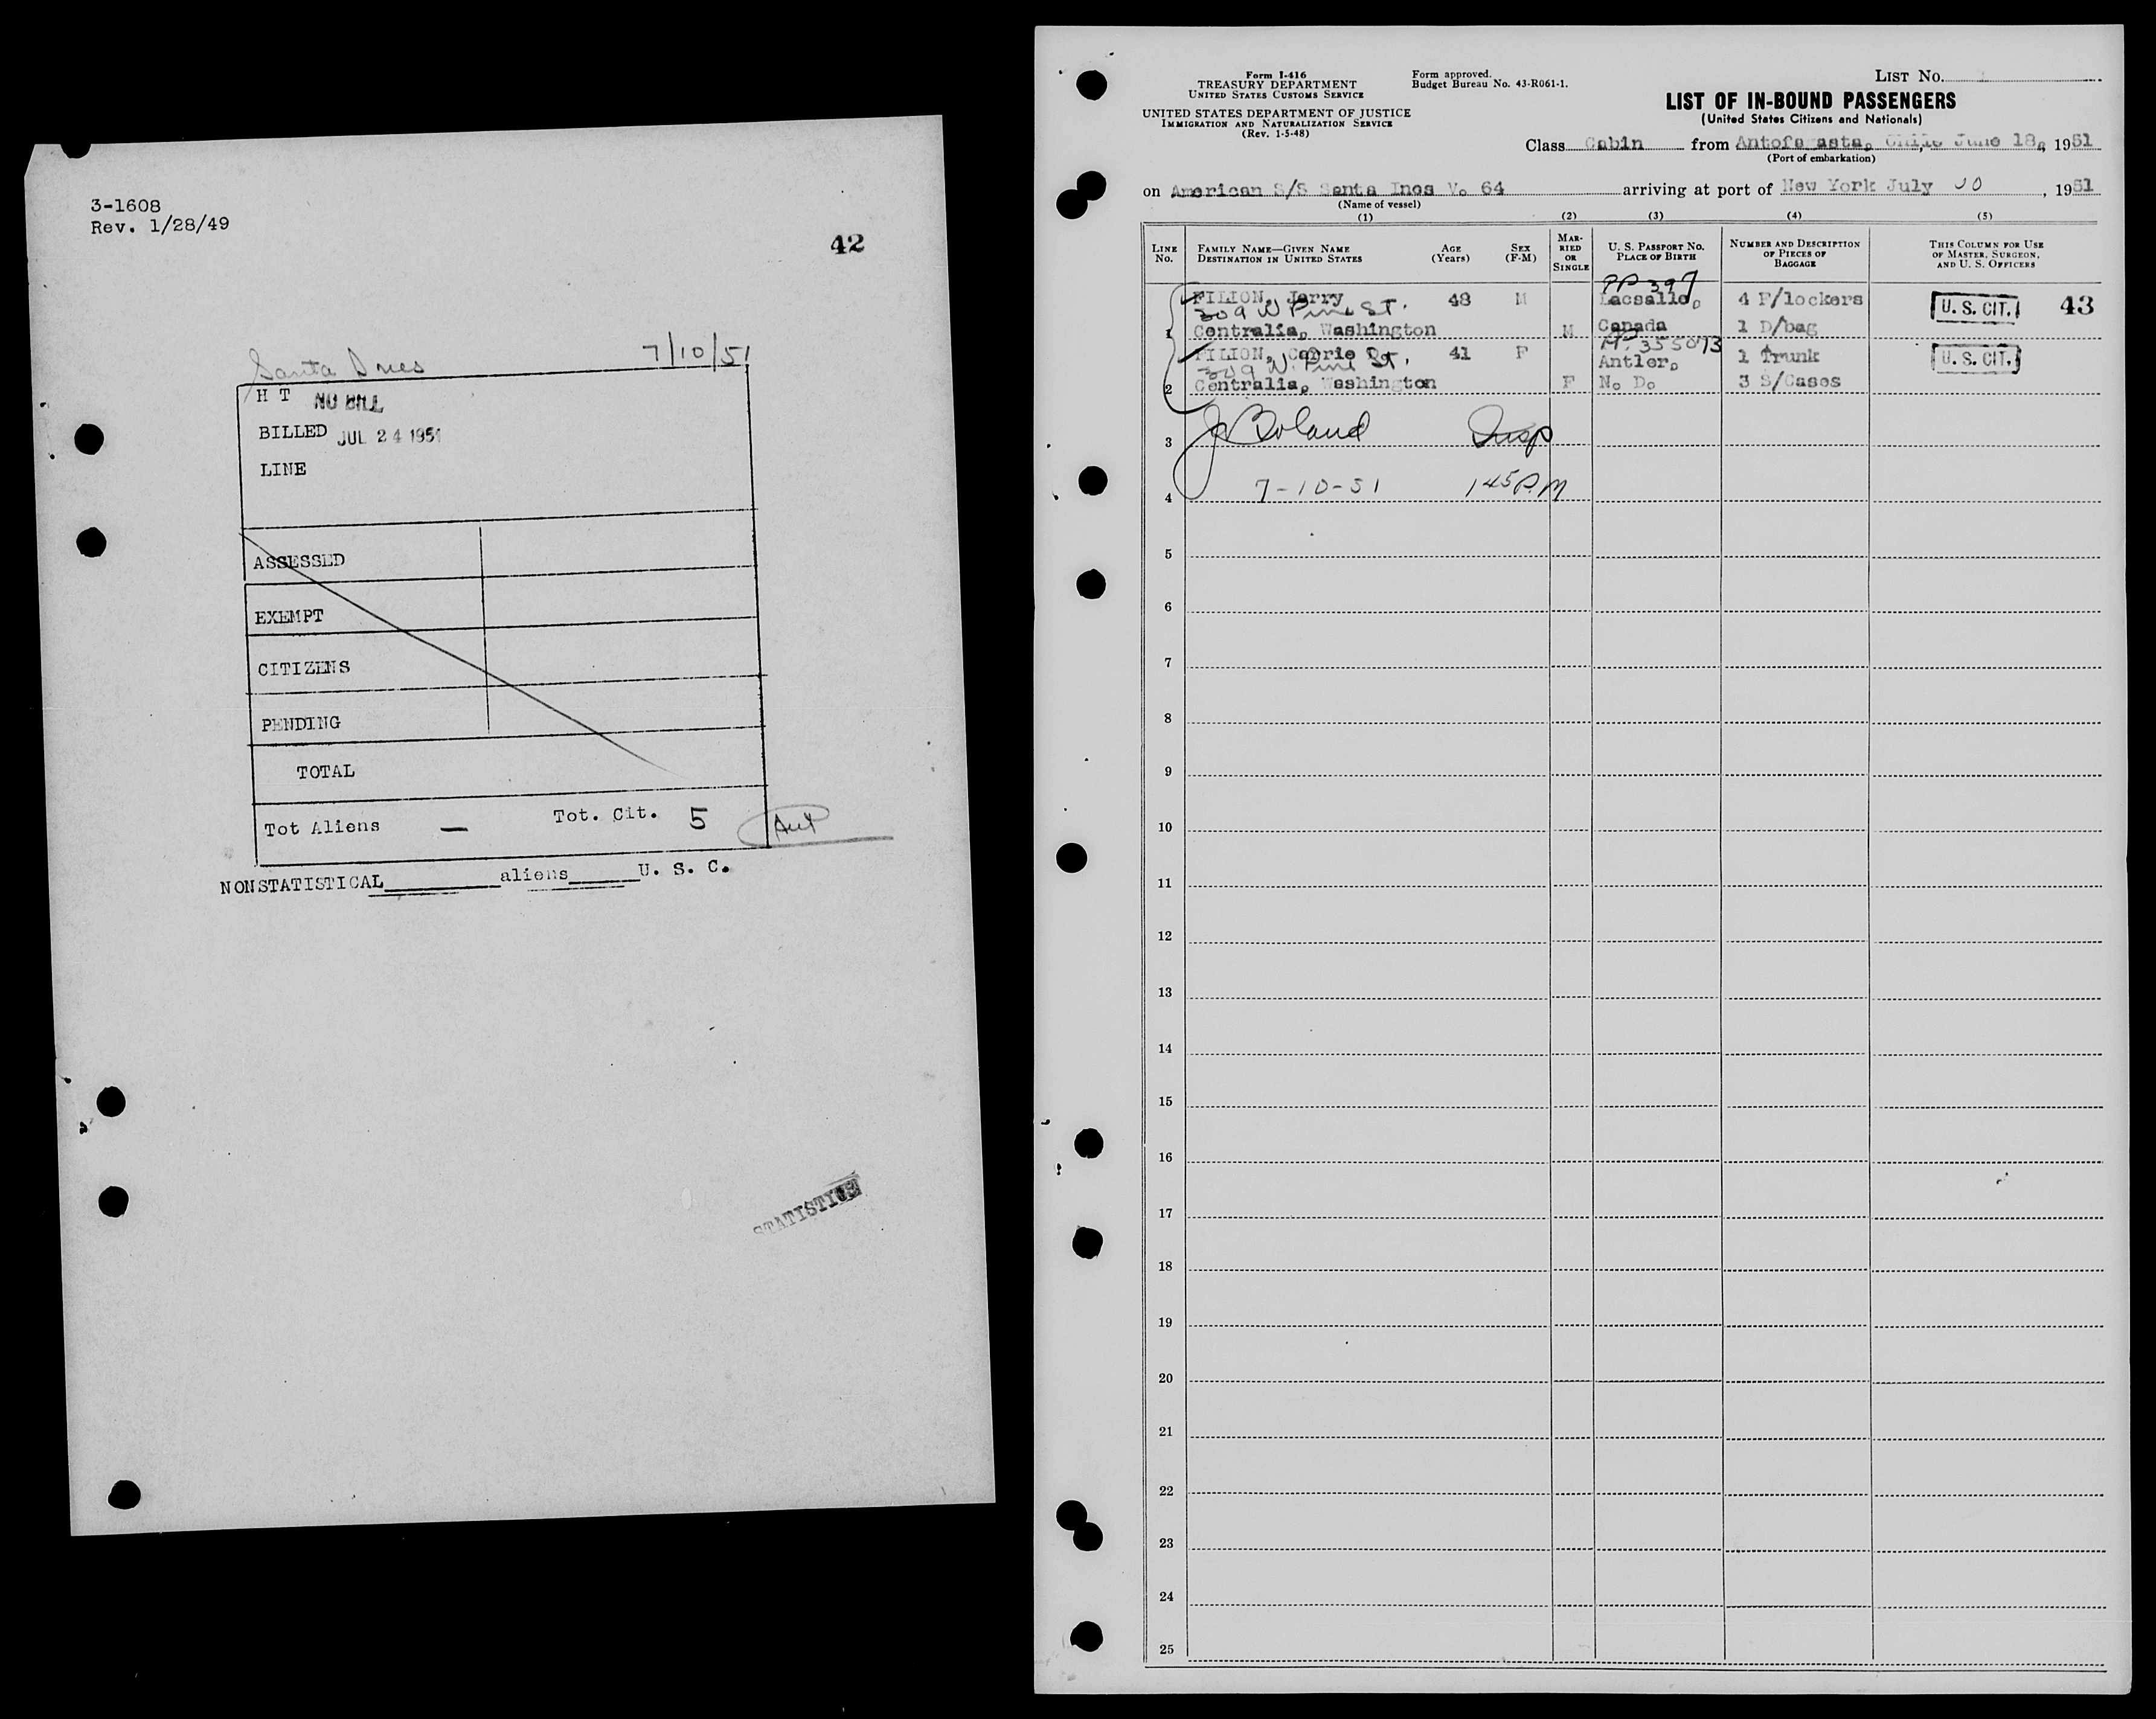 3-1608
Rev. 1/28/49
42
Santa Ines 7/10/51
H T NO BILL
BILLED JUL 24 1951
LINE
ASSESSED
EXEMPT
CITIZENS
PENDING
TOTAL
Tot Aliens — Tot. Cit. 5
NONSTATISTICAL________aliens_____U. S. C.
STATISTICS
Form I-416
TREASURY DEPARTMENT
UNITED STATES CUSTOMS SERVICE
UNITED STATES DEPARTMENT OF JUSTICE
IMMIGRATION AND NATURALIZATION SERVICE
(Rev. 1-5-48)
Form approved.
Budget Bureau No. 43-R061-1.
LIST NO.
LIST OF IN-BOUND PASSENGERS
(United States Citizens and Nationals)
Class Cabin from Antofagasta, Chile, June 18, 1951
(Port of embarkation)
on American S/S Santa Ines V. 64 arriving at port of New York July 10, 1951
(Name of vessel)
(1) (2) (3) (4) (5)
LINE NO.
FAMILY NAME—GIVEN NAME
DESTINATION IN UNITED STATES
AGE (Years)
SEX (F-M)
MARRIED OR SINGLE
U. S. PASSPORT NO.
PLACE OF BIRTH
NUMBER AND DESCRIPTION OF PIECES OF BAGGAGE
THIS COLUMN FOR USE OF MASTER, SURGEON, AND U. S. OFFICERS
PP 397
FILION, Jerry 48 M Lacsalle, 4 F/lockers U. S. CIT. 43
309 W Pine ST.
1 Centralia, Washington M Canada 1 D/bag
355073
FILION, Carrie D. 41 F Antler, 1 Trunk U. S. CIT.
309 W. Pine St,
2 Centralia, Washington F N. D. 3 S/Cases
3 J Boland Insp
4 7-10-51 1 45 P.M
5
6
7
8
9
10
11
12
13
14
15
16
17
18
19
20
21
22
23
24
25